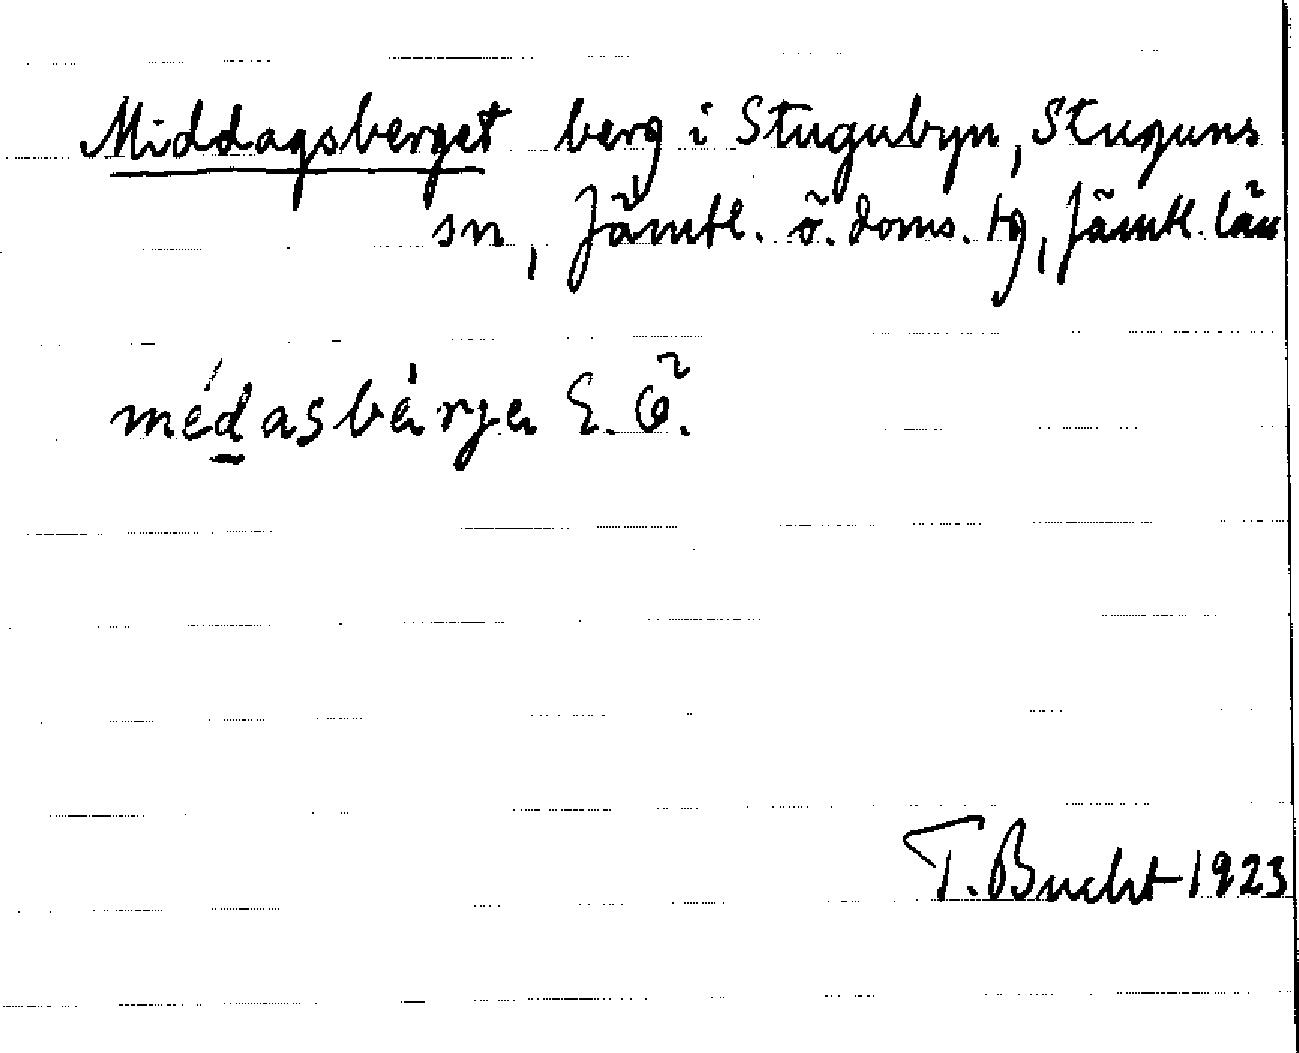 Middagsberget berg i Stugubyn, Stuguns
sn, Jämtl. ö. doms. tg, Jämtl. län
médasbèrjen E. Ö.
T. Bucht 1923